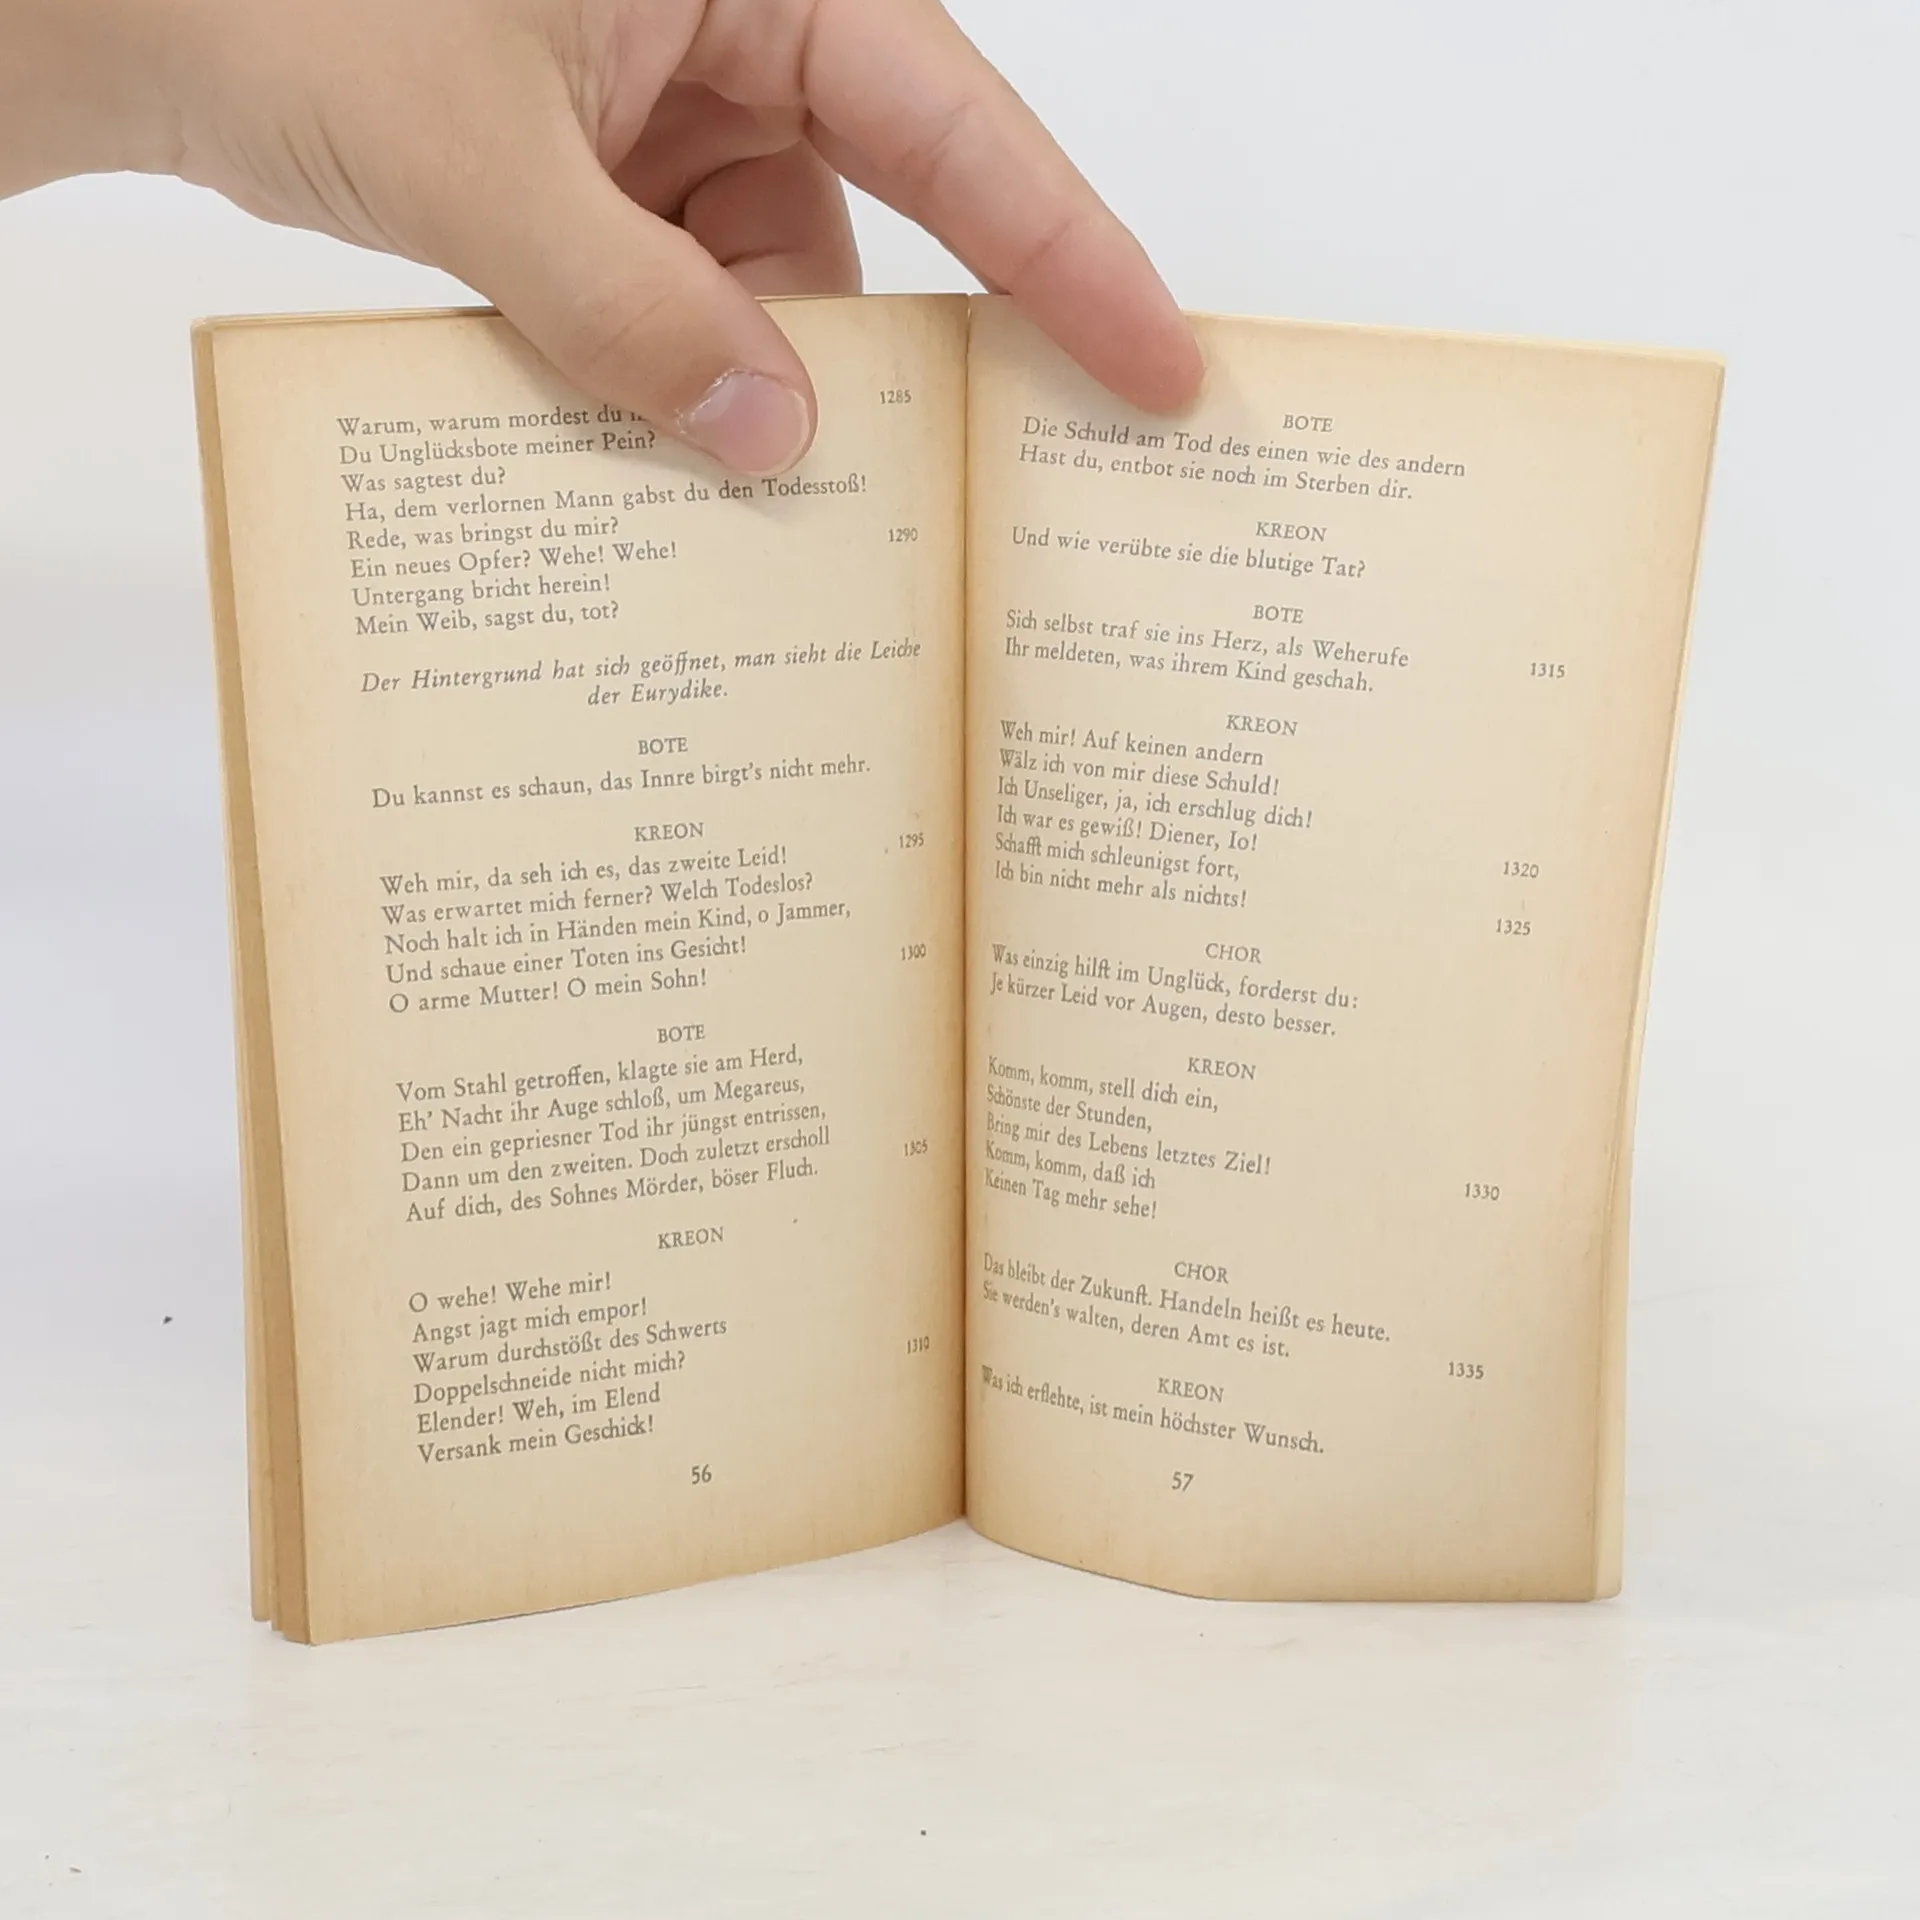 Warum, warum mordest du
1285
Du Unglücksbote meiner Pein?
Was sagtest du?
Ha, dem verlornen Mann gabst du den Todesstoß!
Rede, was bringst du mir?
1290
Ein neues Opfer? Wehe! Wehe!
Untergang bricht herein!
Mein Weib, sagst du, tot?
Der Hintergrund hat sich geöffnet, man sieht die Leiche
der Eurydike.
BOTE
Du kannst es schaun, das Innre birgt's nicht mehr.
KREON
Weh mir, da seh ich es, das zweite Leid!
1295
Was erwartet mich ferner? Welch Todeslos?
Noch halt ich in Händen mein Kind, o Jammer,
Und schaue einer Toten ins Gesicht!
O arme Mutter! O mein Sohn!
1300
BOTE
Vom Stahl getroffen, klagte sie am Herd,
Eh' Nacht ihr Auge schloß, um Megareus,
Den ein gepriesner Tod ihr jüngst entrissen,
Dann um den zweiten. Doch zuletzt erscholl
Auf dich, des Sohnes Mörder, böser Fluch.
1305
KREON
O wehe! Wehe mir!
Angst jagt mich empor!
Warum durchstößt des Schwerts
Doppelschneide nicht mich?
Elender! Weh, im Elend
1310
Versank mein Geschick!
56
BOTE
Die Schuld am Tod des einen wie des andern
Hast du, entbot sie noch im Sterben dir.
KREON
Und wie verübte sie die blutige Tat?
BOTE
Sich selbst traf sie ins Herz, als Weherufe
1315
Ihr meldeten, was ihrem Kind geschah.
KREON
Weh mir! Auf keinen andern
Wälz ich von mir diese Schuld!
Ich Unseliger, ja, ich erschlug dich!
Ich war es gewiß! Diener, Io!
1320
Schafft mich schleunigst fort,
Ich bin nicht mehr als nichts!
1325
CHOR
Was einzig hilft im Unglück, forderst du:
Je kürzer Leid vor Augen, desto besser.
KREON
Komm, komm, stell dich ein,
Schönste der Stunden,
Bring mir des Lebens letztes Ziel!
1330
Komm, komm, daß ich
Keinen Tag mehr sehe!
CHOR
Das bleibt der Zukunft. Handeln heißt es heute.
Sie werden's walten, deren Amt es ist.
1335
KREON
Was ich erflehte, ist mein höchster Wunsch.
57